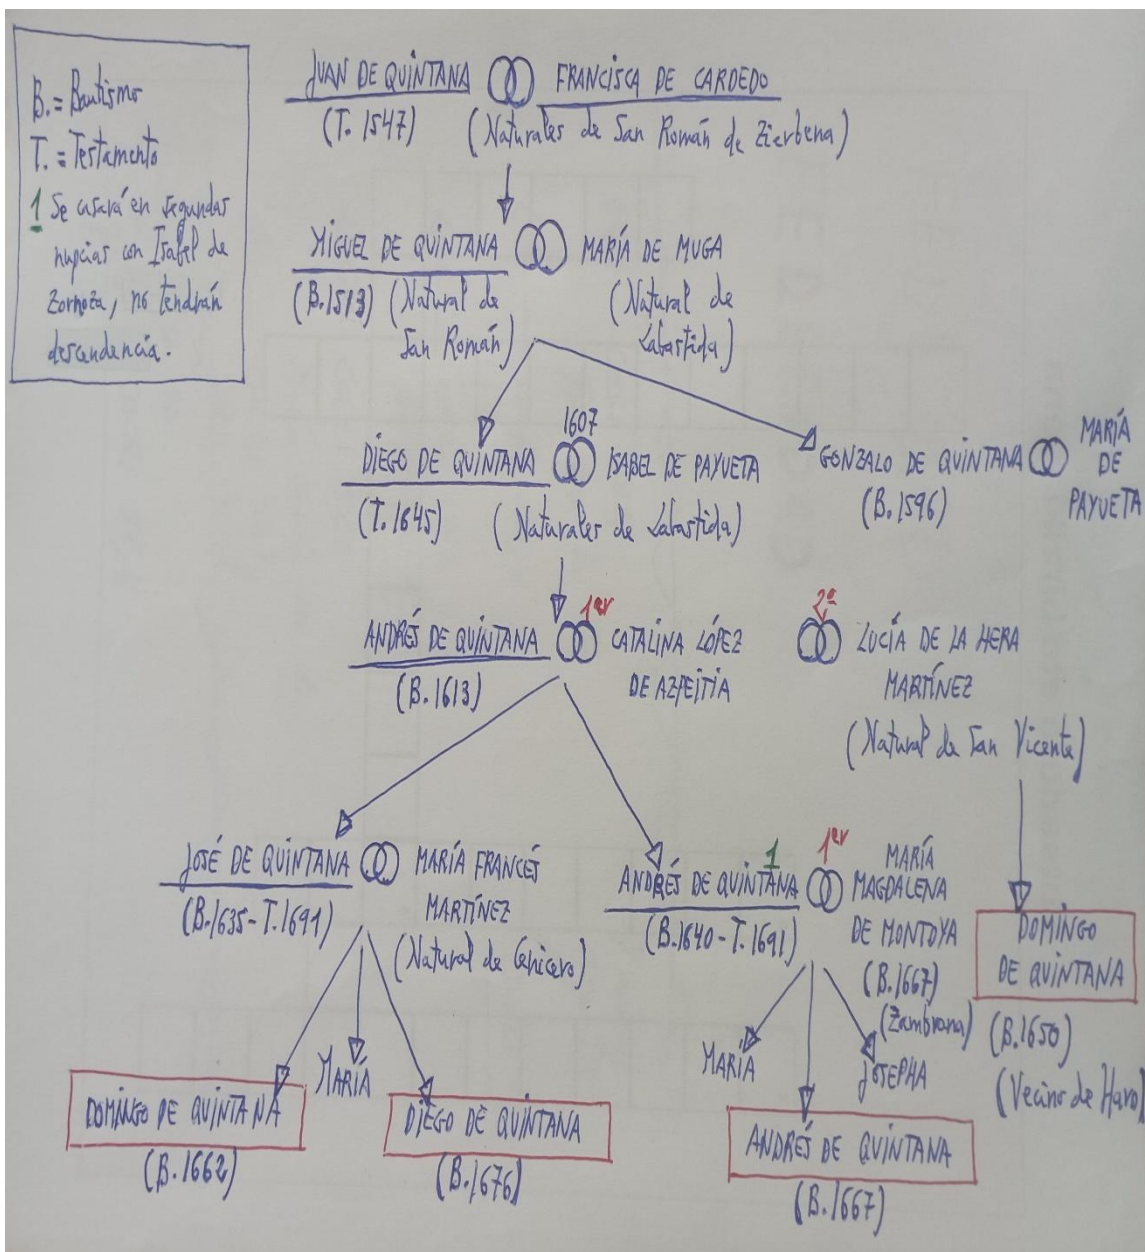 B. = Bautismo
T. = Testamento
1 Se casará en segundas
nupcias con Isabel de
Zornoza, no tendrán
descendencia.
JUAN DE QUINTANA FRANCISCA DE CARDEDO
(T. 1547) (Naturales de San Román de Zierbena)
MIGUEL DE QUINTANA MARÍA DE MUGA
(B. 1513) (Natural de San Román) (Natural de Labastida)
1607
DIEGO DE QUINTANA ISABEL DE PAYUETA
(T. 1645) (Naturales de Labastida)
GONZALO DE QUINTANA MARÍA DE PAYUETA
(B. 1596)
1er
ANDRÉS DE QUINTANA CATALINA LÓPEZ
DE AZPEITIA
(B. 1613)
2ª
LUCÍA DE LA HERA
MARTÍNEZ
(Natural de San Vicente)
JOSÉ DE QUINTANA MARÍA FRANCÉS
MARTÍNEZ
(B. 1635 - T. 1691)
(Natural de Cenicero)
1 1er
ANDRÉS DE QUINTANA
(B. 1640 - T. 1691)
MARÍA
MAGDALENA
DE MONTOYA
(B. 1667)
(Zambrana)
DOMINGO
DE QUINTANA
(B. 1650)
(Vecino de Haro)
DOMINGO DE QUINTANA
(B. 1662)
MARÍA
DIEGO DE QUINTANA
(B. 1676)
MARÍA
JOSEPHA
ANDRÉS DE QUINTANA
(B. 1667)